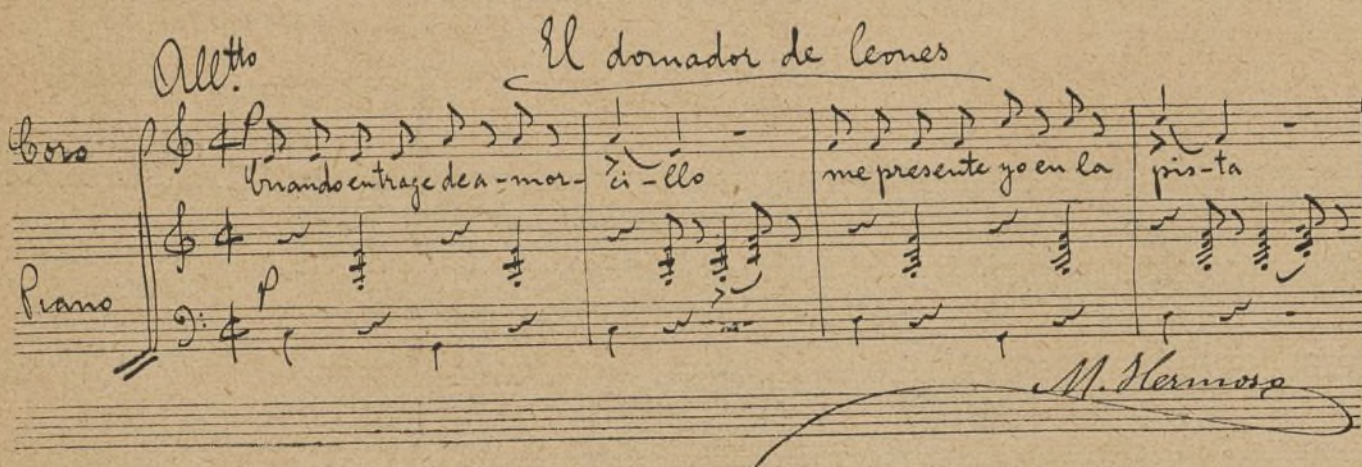 El domador de leones
All.tto
Coro
p
Cuando en trage de a-mor-ci-llo me presente yo en la pis-ta
Piano
p
M. Hermoso